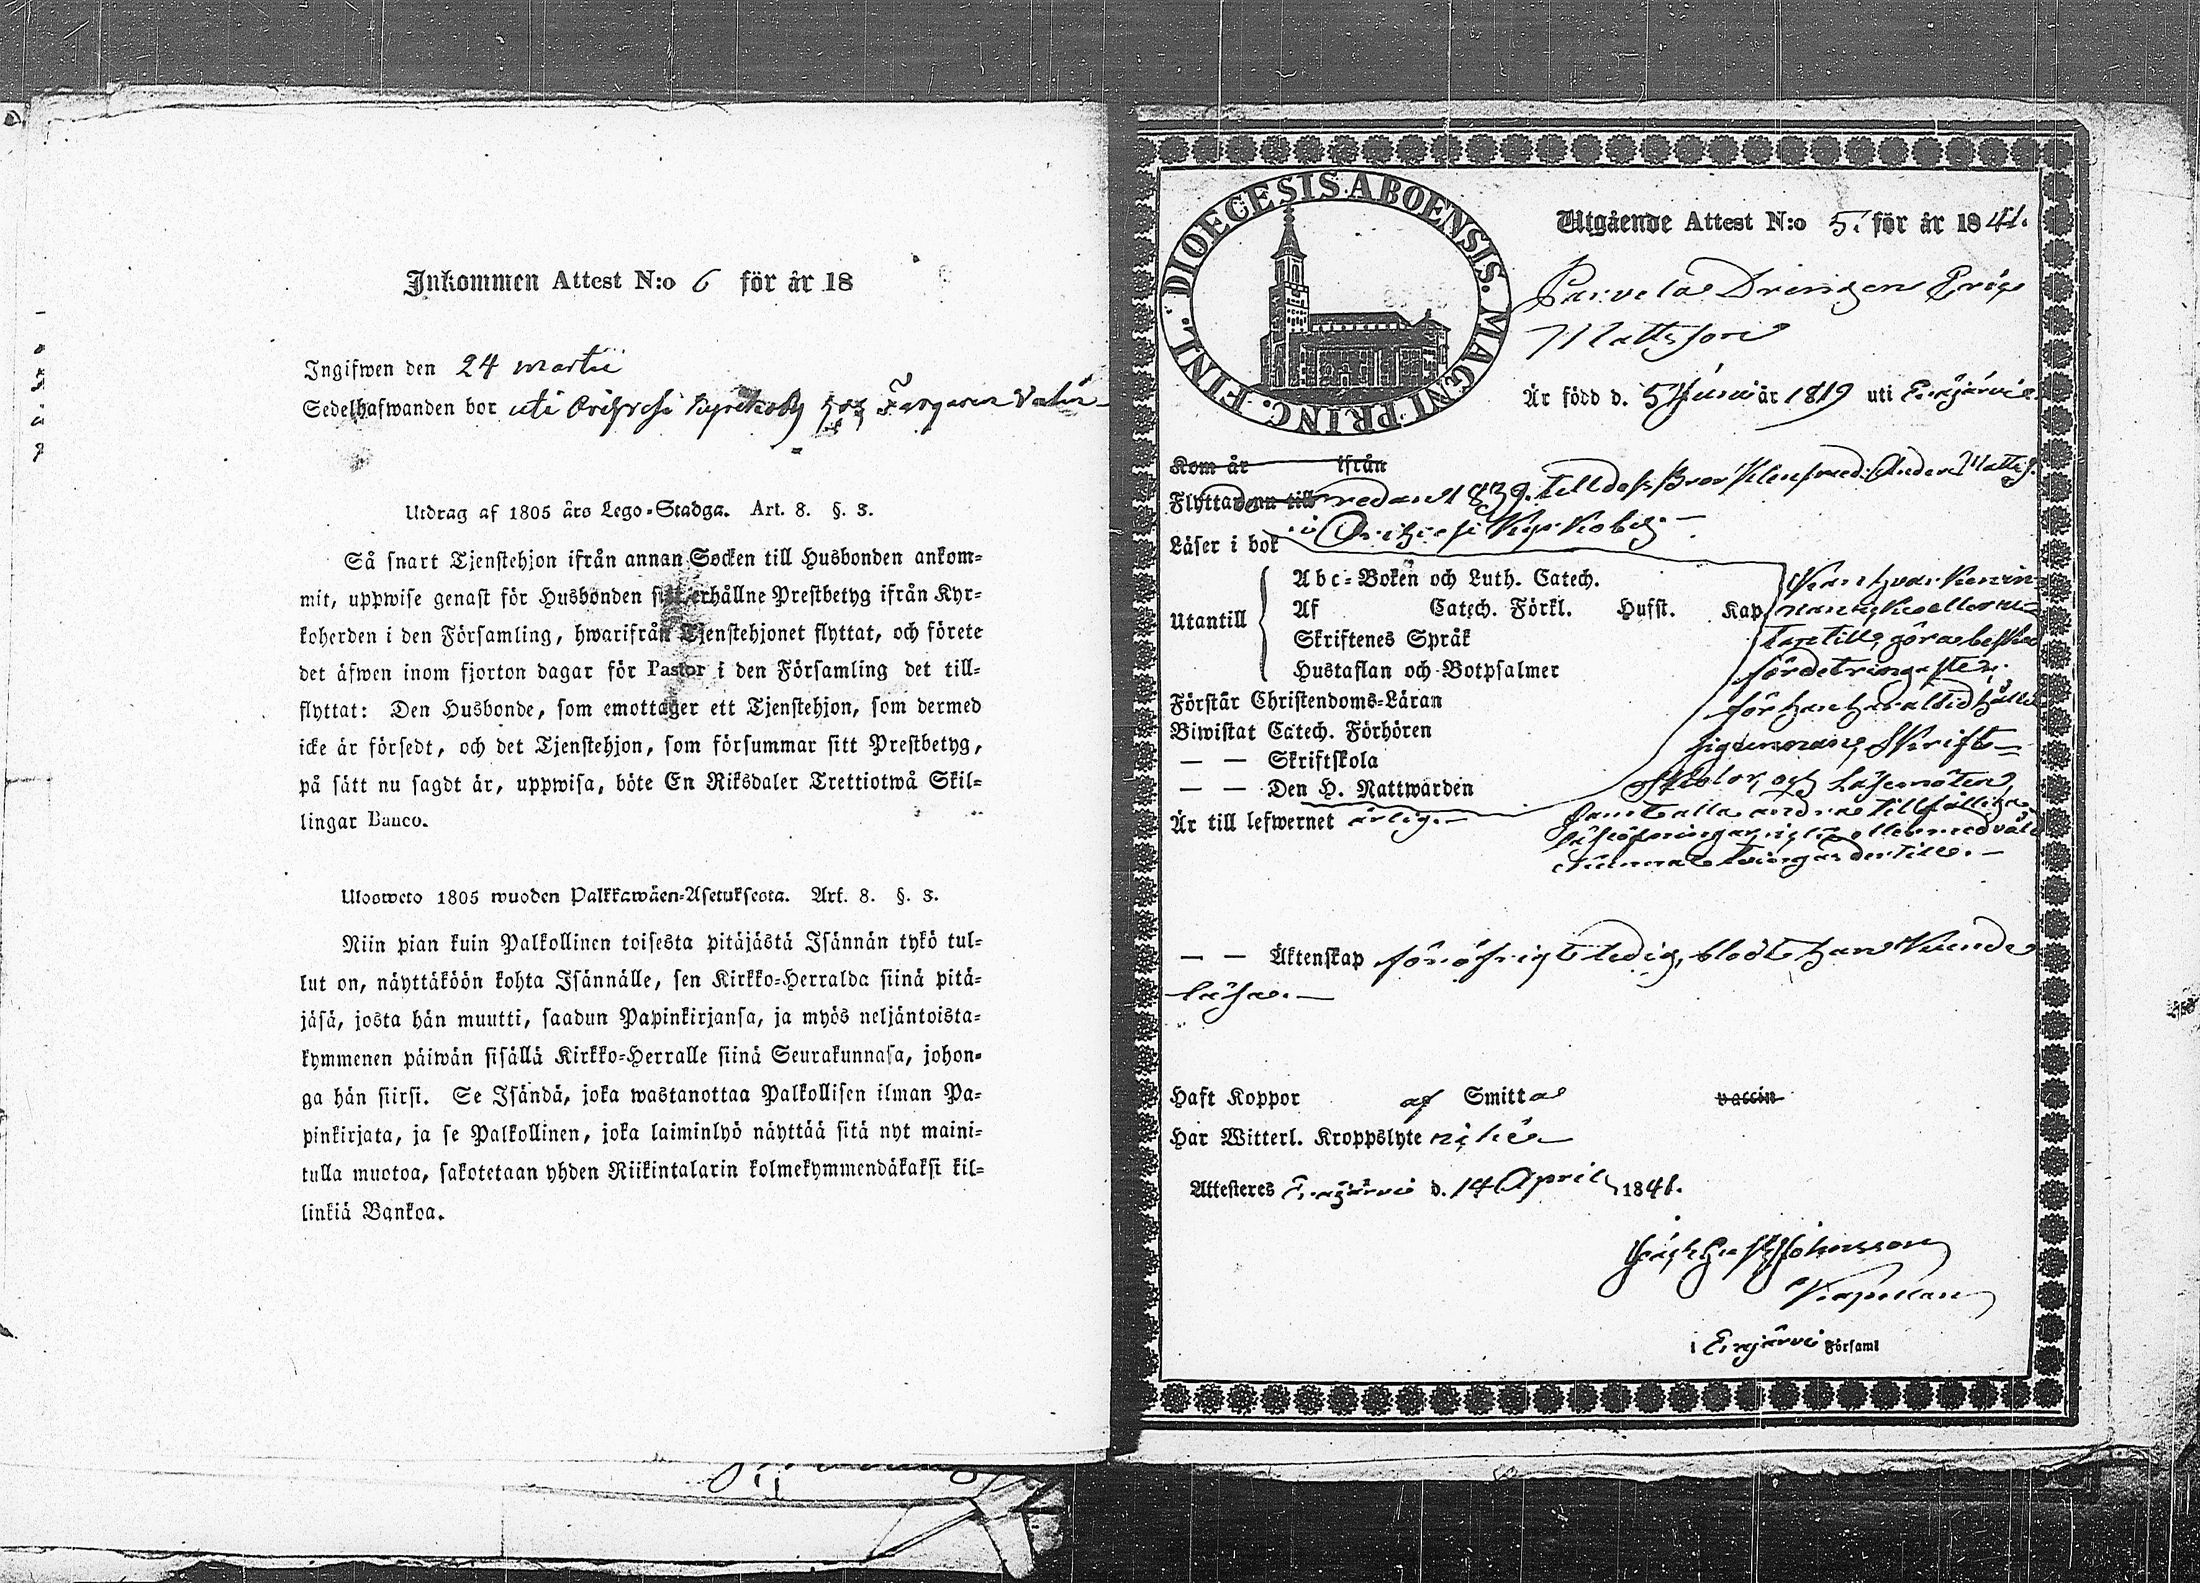 Inkommen Attest N:o 6 för år 18
Ingifwen den 24 martii
Sedelhafwanden bor uti Orihvesi kyrckoby hos Färgaren
Utdrag af 1805 års Lego-Stadga. Art. 8. §. 3.
Så snart Tjenstehjon ifrån annan Socken till Husbonden ankom-
mit, uppwise genast för Husbonden sitt erhållne Prestbetyg ifrån Kyr-
koherden i den Församling, hwarifrån Tjenstehjonet flyttat, och förete
det äfwen inom fjorton dagar för Pastor i den Församling det till-
flyttat: Den Husbonde, som emottager ett Tjenstehjon, som dermed
icke är försedt, och det Tjenstehjon, som försummar sitt Prestbetyg,
på sätt nu sagdt är, uppwisa, böte En Riksdaler Trettiotwå Skil-
lingar Banco.
Ulosweto 1805 wuoden Palkkawäen-Asetuksesta. Art. 8. §. 3.
Niin pian kuin Palkollinen toisesta pitäjästä Isännän tykö tul-
lut on, näyttäköön kohta Isännälle, sen Kirkko-Herralda siinä pitä-
jäsä, josta hän muutti, saadun Papinkirjansa, ja myös neljäntoista-
kymmenen päiwän sisällä Kirkko-Herralle siinä Seurakunnasa, johon-
ga hän siirsi. Se Isändä, joka wastanottaa Palkollisen ilman Pa-
pinkirjata, ja se Palkollinen, joka laiminlyö näyttää sitä nyt maini-
tulla muotoa, sakotetaan yhden Riikintalarin kolmekymmendäkaksi kil-
linkiä Bankoa.
DIOECESIS ABOENSIS. MAGNI PRINC. FINL.
Utgående Attest N:o 5. för år 1841.
Parvela Drängen Eric
Mattsson
Är född d. 5 Junii år 1819 uti Eräjärvi
Kom år ifrån
Flyttade redan 1839. till dess Bror Klensmed Anders Mattss.
i Orihvesi Kyrkoby. –
Läser i bok
Abc-Boken och Luth. Catech.
Utantill Af Catech. Förkl. Husst. Kap
Skriftenes Språk
Hustaflan och Botpsalmer
Förstår Christendoms-Läran
Biwistat Catech. Förhören
— — Skriftskola
— — Den H. Nattwarden
Kan hvarken in-
nan eller u-
tan till, göra besked
för det ringaste,
för han har altid hållit
sig undan, Skrift-
skolor och Läsemöten,
samt alla andra tillfälliga
läseöfningar, eller med våld
kunnat tvingas dertill. –
Är till lefwernet ärlig. –
— — Äktenskap föröfrigt ledig, blott han kunde
läsa. –
Haft Koppor af Smitta vaccin
Har Witterl. Kroppslyte
Attesteres Eräjärvi d. 14 April 1841.
Johnsson
Kapellan
i Eräjärvi Församl